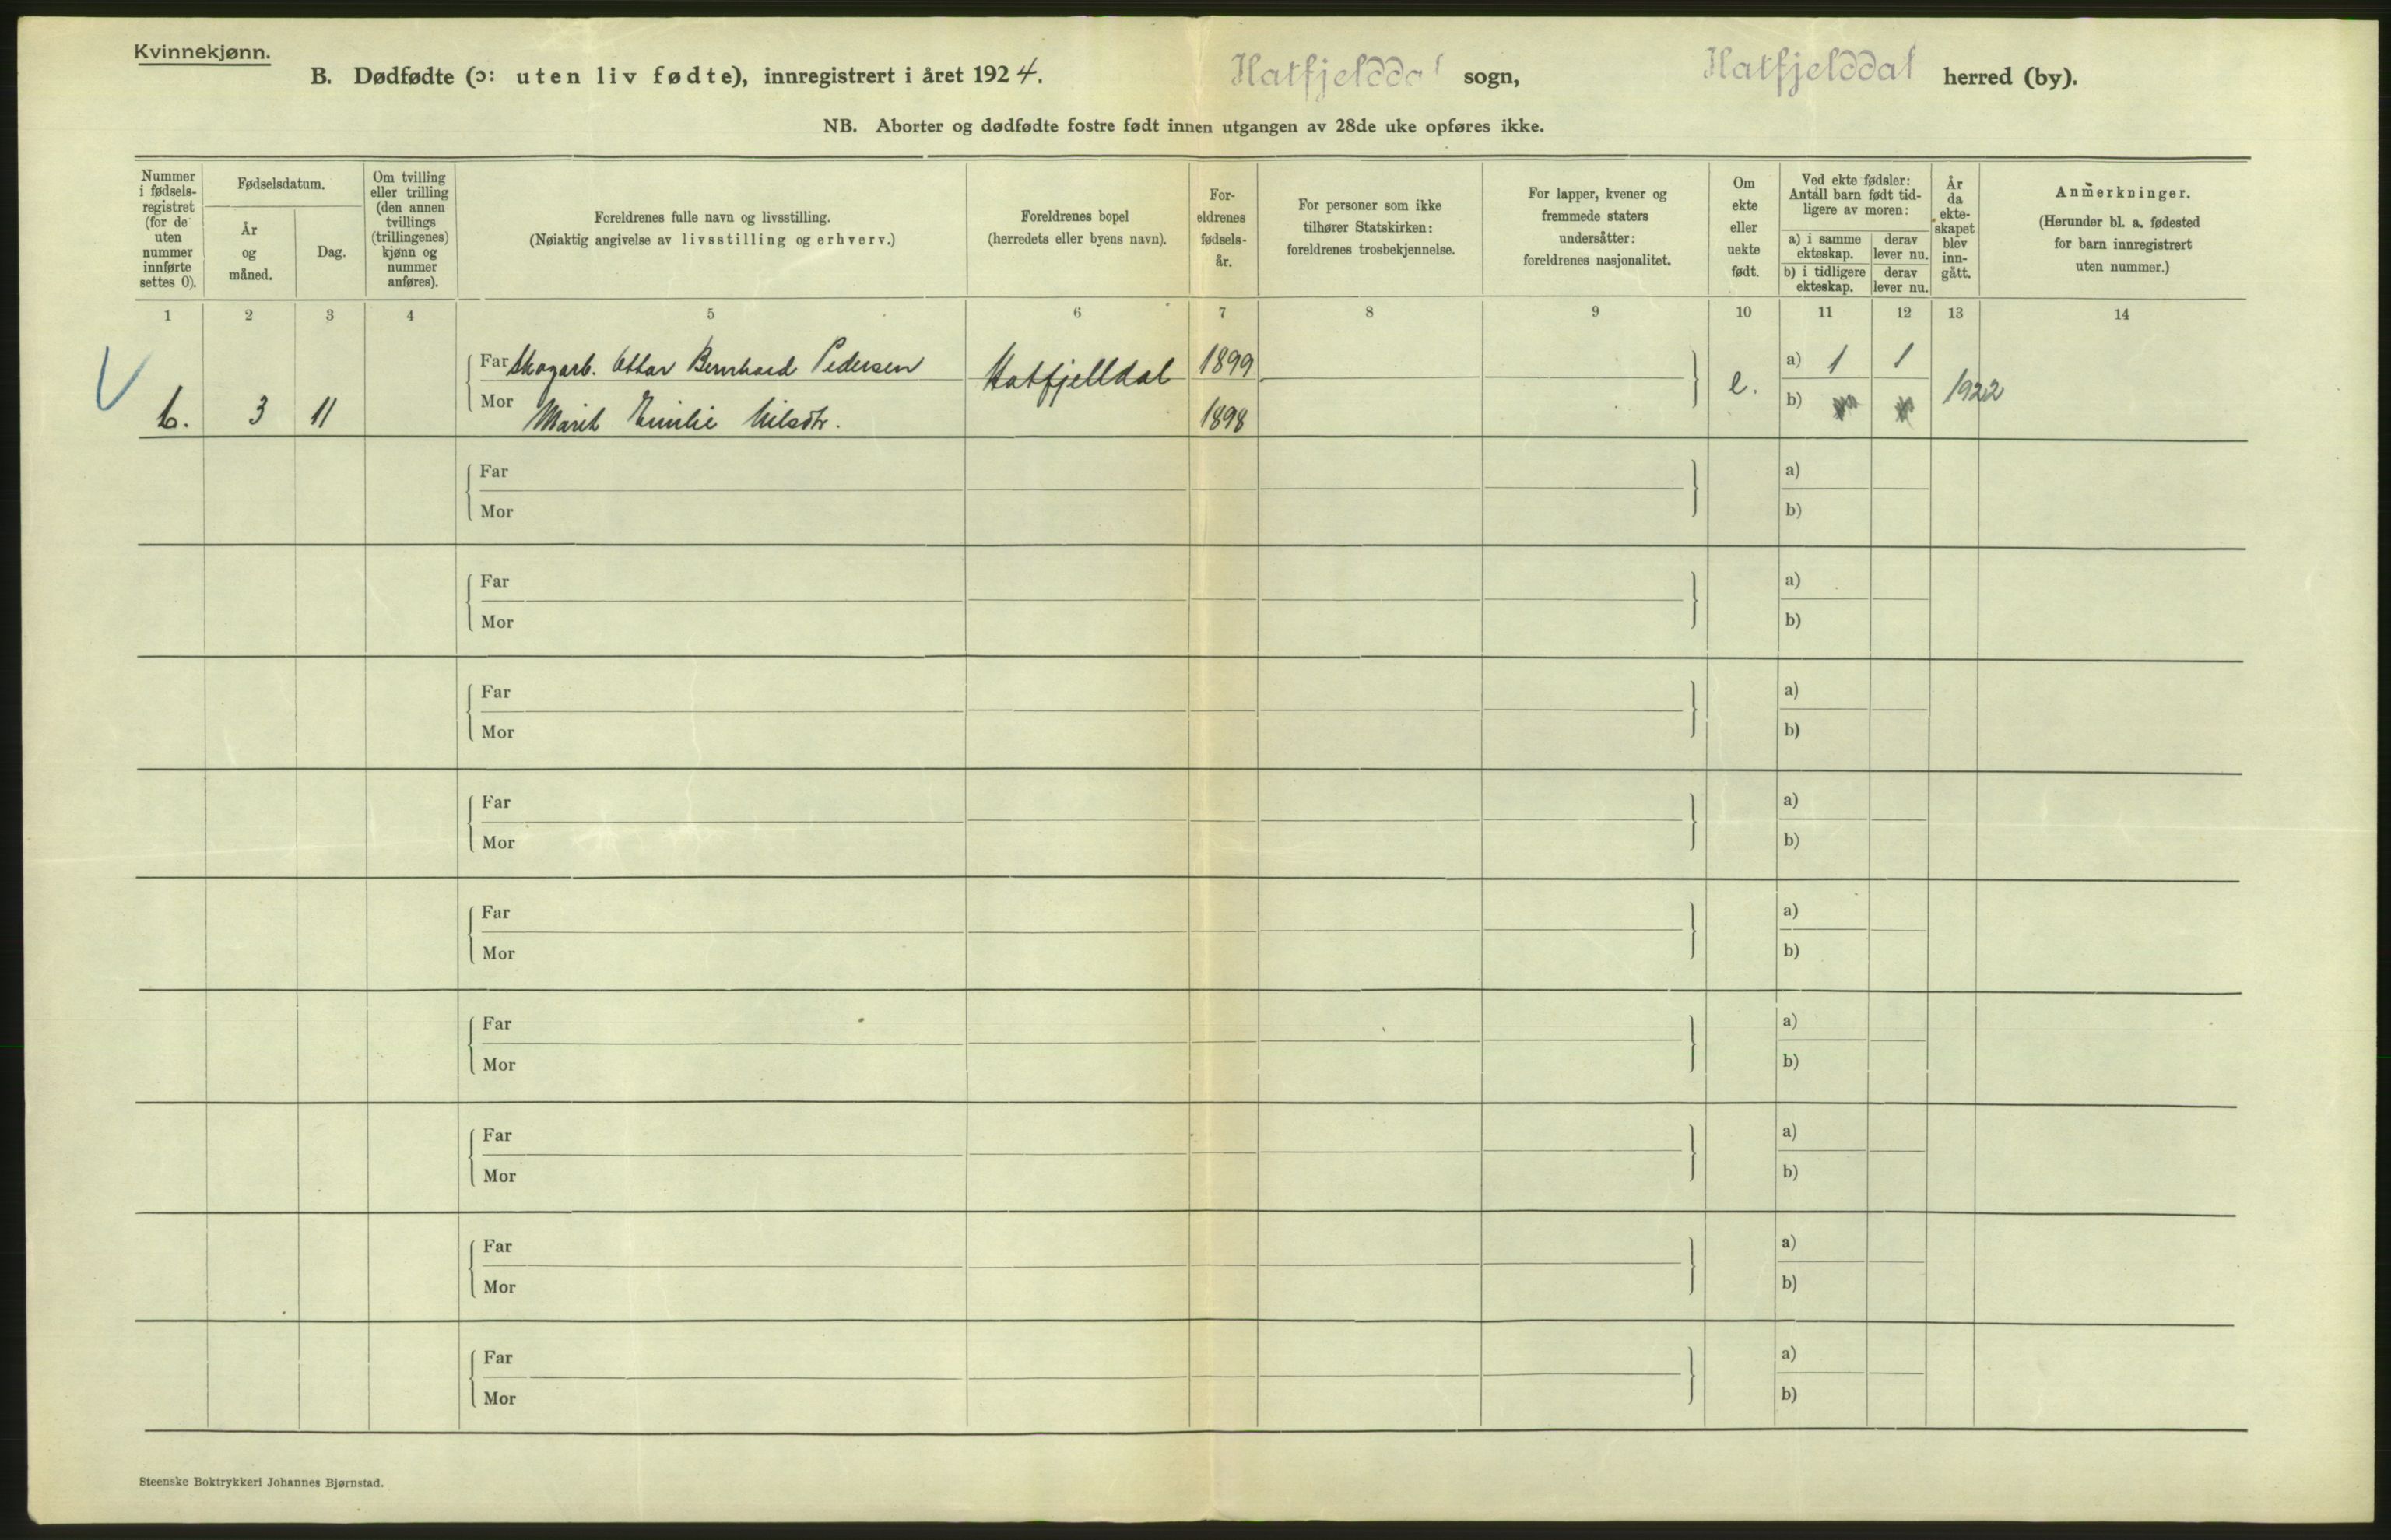 Kvinnekjønn.
B. Dødfødte (ɔ: uten liv fødte), innregistrert i året 1924. Hatfjelddal sogn, Hatfjelddal herred (by).
NB. Aborter og dødfødte fostre født innen utgangen av 28de uke opføres ikke.
Nummer i fødsels-registret (for de uten nummer innførte settes 0).
Fødselsdatum.
År og måned.
Dag.
Om tvilling eller trilling (den annen tvillings (trillingenes) kjønn og nummer anføres).
Foreldrenes fulle navn og livsstilling.
(Nøiaktig angivelse av livsstilling og erhverv.)
Foreldrenes bopel
(herredets eller byens navn).
For-eldrenes fødsels-år.
For personer som ikke tilhører Statskirken: foreldrenes trosbekjennelse.
For lapper, kvener og fremmede staters undersåtter: foreldrenes nasjonalitet.
Om ekte eller uekte født.
Ved ekte fødsler: Antall barn født tid-ligere av moren:
a) i samme ekteskap.
derav lever nu.
b) i tidligere ekteskap.
derav lever nu.
År da ekte-skapet blev inn-gått.
Anmerkninger.
(Herunder bl. a. fødested for barn innregistrert uten nummer.)
1 2 3 4 5 6 7 8 9 10 11 12 13 14
Far Skogarb. Ottar Bernhard Pedersen Hatfjelldal 1899 e. a) 1 1 1922
6. 3 11 Mor Marit Emilie Nilsdtr. 1898 b)
Far a)
Mor b)
Far a)
Mor b)
Far a)
Mor b)
Far a)
Mor b)
Far a)
Mor b)
Far a)
Mor b)
Far a)
Mor b)
Far a)
Mor b)
Far a)
Mor b)
Steenske Boktrykkeri Johannes Bjørnstad.